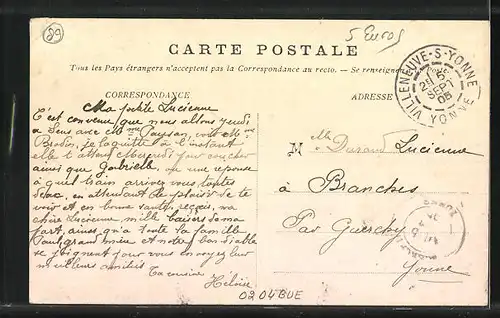 89
5 Euros
CARTE POSTALE
Tous les Pays étrangers n'acceptent pas la Correspondance au recto. — Se renseigner
CORRESPONDANCE
ADRESSE
VILLENEUVE-S-YONNE
SEPT
YONNE
Ma petite Lucienne
C'est convenu que nous allons jeudi
à Sens avec Mme voit Mme
Brodin, je la quitte à l'instant
elle t'attend Mercredi pour coucher
ainsi que Gabrielle, une réponse
à quel train arrivez vous toutes
deux, en attendant le plaisir de te
voir et en bonne santé, reçois, ma
chère Lucienne mille baisers de ma
part, ainsi qu'à toute la famille
se joignent pour vous envoyer leur
meilleurs amitiés
Ta cousine
Héloïse
Mlle Durand Lucienne
à Branches
Par Guerchy
Yonne
0204BUE